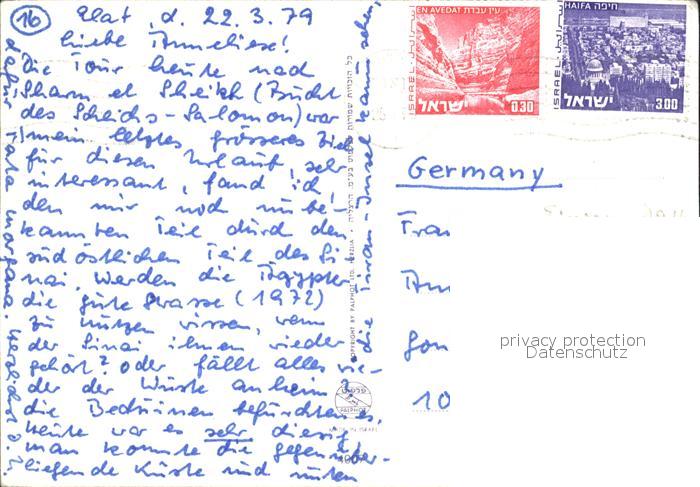 16
Elat, d. 22.3.79
Liebe Anneliese!
Die Tour heute nach
Sharm el Sheikh (Bucht
des Scheichs-Salomon) war
mein letztes grösseres Ziel
für diesen Urlaub, sehr
interessant, fand ich
den mir noch unbe-
kannten Teil durch den
südöstlichen Teil des Si-
nai. Werden die Ägypter
die gute Strasse (1972)
zu nützen wissen, wenn
der Sinai ihnen wieder
gehört? Oder fällt alles wie-
der der Wüste anheim?
die Beduinen befürchten es.
Heute war es sehr diesig,
man konnte die gegenüber-
liegende Küste und unten
die Tiran-Insel kaum sehen,
dafür Fata morgana. Herzlichst
COPYRIGHT BY PALPHOT LTD. HERZLIA
PALPHOT
MADE IN ISRAEL
EN AVEDAT עין עבדת
ISRAEL
ישראל
0.30
HAIFA חיפה
ISRAEL
ישראל
3.00
Germany
Frau
10
privacy protection
Datenschutz